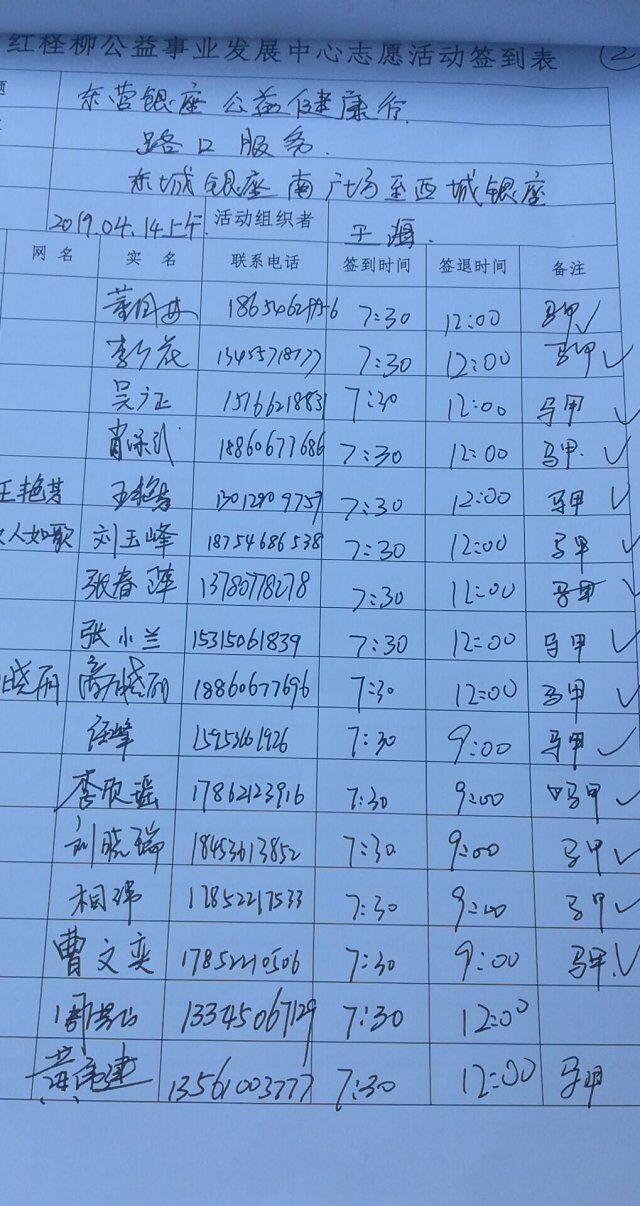 红柽柳公益事业发展中心志愿活动签到表 2
题 东营银座公益健康行
路口服务.
东城银座南广场至西城银座
2019.04.14上午. 活动组织者
网名 实名 联系电话 签到时间 签退时间 备注
7:30 12:00 马甲 ✓
13455718777 7:30 12:00 马甲 ✓
吴广正 15166218831 7:30 12:00 马甲 ✓
18860677686 7:30 12:00 马甲. ✓
王艳芳 王艳芳 13012909759 7:30 12:00 马甲 ✓
人如歌 刘玉峰 18754686538 7:30 12:00 马甲 ✓
张春萍 13780778278 7:30 12:00 马甲 ✓
张小兰 15315061839 7:30 12:00 马甲 ✓
晓丽 18860677696 7:30 12:00 马甲 ✓
任峰 15953661926 7:30 9:00 马甲 ✓
李欣谣 17862123916 7:30 9:00 马甲 ✓
刘晓瑞 18453613852 7:30 9:00 马甲 ✓
相玮 17852217533 7:30 9:00 马甲 ✓
曹文奕 17852210506 7:30 9:00 马甲. ✓
13345067129 7:30 12:00
13561003777 7:30 12:00 马甲